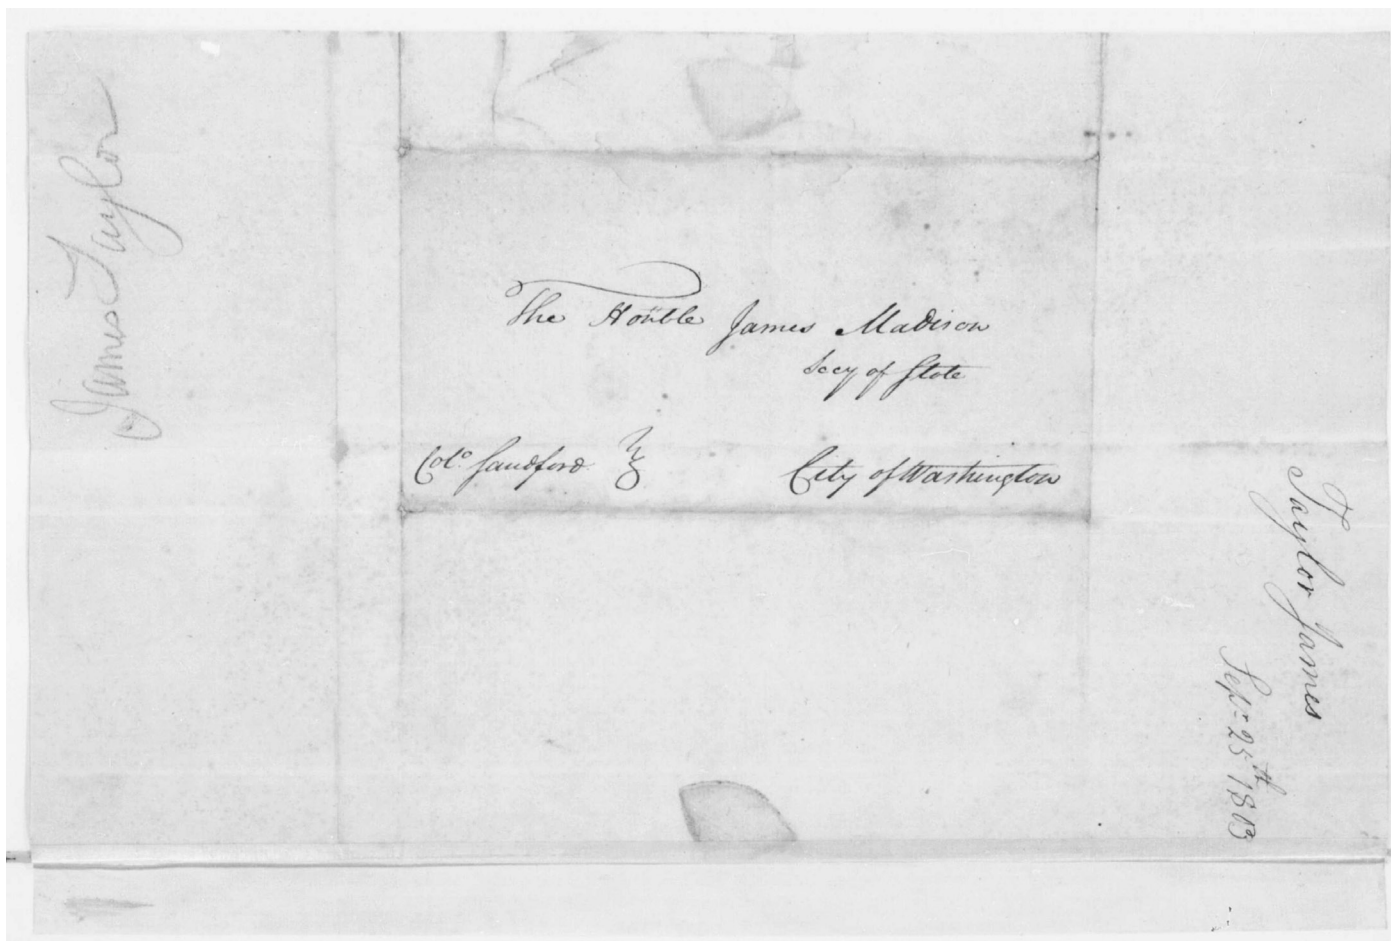 James Taylor
The Honble James Madison
Secy of State
Colo. Sandford
City of Washington
Taylor James
Sepr. 25th 1803